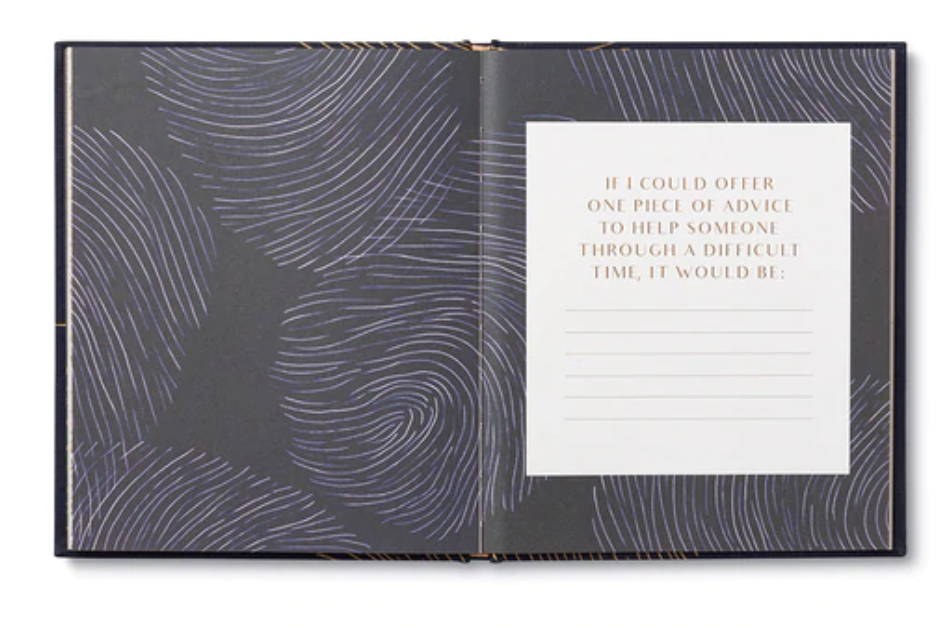 IF I COULD OFFER
ONE PIECE OF ADVICE
TO HELP SOMEONE
THROUGH A DIFFICULT
TIME, IT WOULD BE: